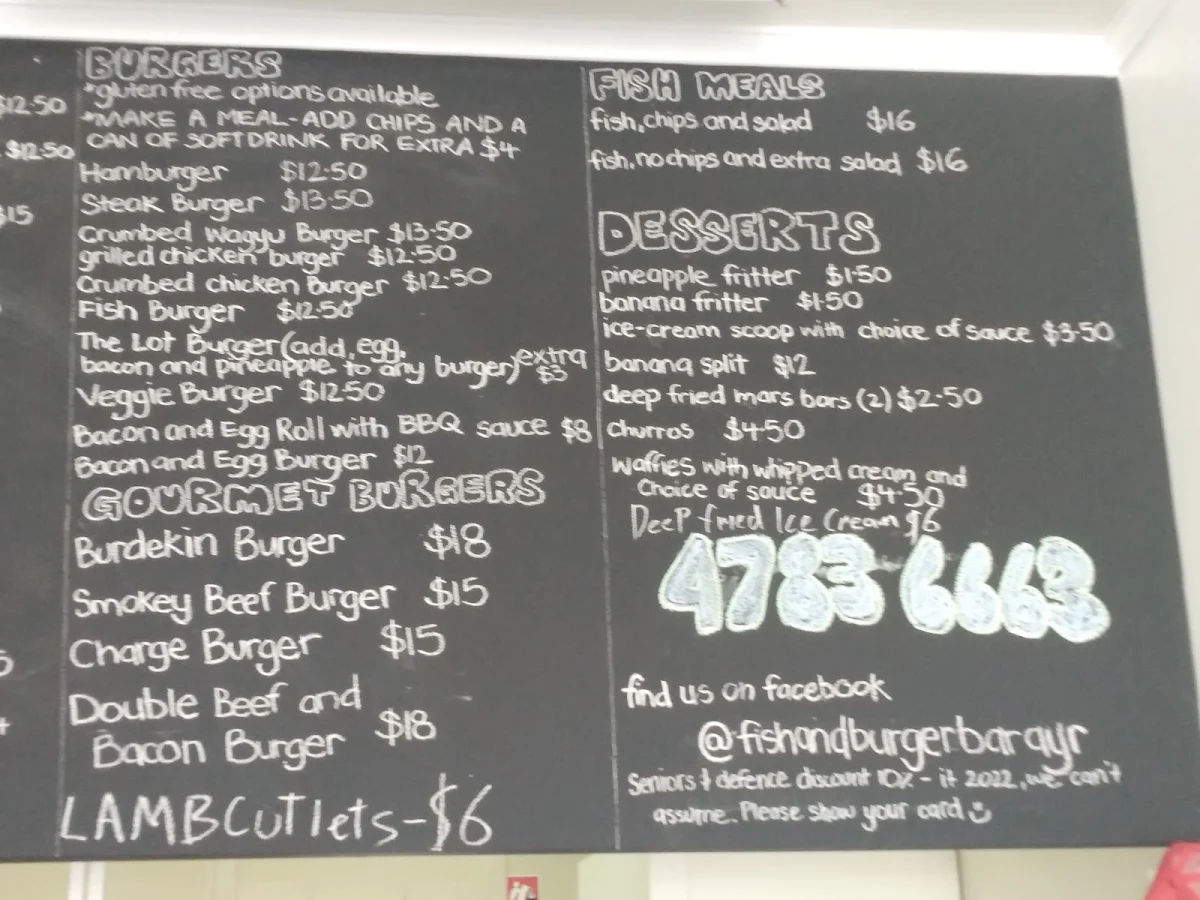 $12.50
$12.50
$15
BURGERS
*gluten free options available
*MAKE A MEAL-ADD CHIPS AND A
CAN OF SOFTDRINK FOR EXTRA $4
Hamburger $12.50
Steak Burger $13.50
Crumbed Wagyu Burger $13.50
grilled chicken burger $12.50
Crumbed chicken Burger $12.50
Fish Burger $12.50
The Lot Burger (add, egg,
bacon and pineapple to any burger) extra $3
Veggie Burger $12.50
Bacon and Egg Roll with BBQ sauce $8
Bacon and Egg Burger $12
GOURMET BURGERS
Burdekin Burger $18
Smokey Beef Burger $15
Charge Burger $15
Double Beef and
Bacon Burger $18
LAMB CUTlets-$6
FISH MEALS
fish, chips and salad $16
fish, no chips and extra salad $16
DESSERTS
pineapple fritter $1.50
banana fritter $1.50
ice-cream scoop with choice of sauce $3.50
banana split $12
deep fried mars bars (2) $2.50
Churros $4.50
Waffles with whipped cream and
Choice of sauce $4.50
Deep fried Ice Cream $6
4783 6663
find us on facebook
@fishandburgerbarayr
Seniors & defence discount 10% - it 2022, we can't
assume. Please show your card